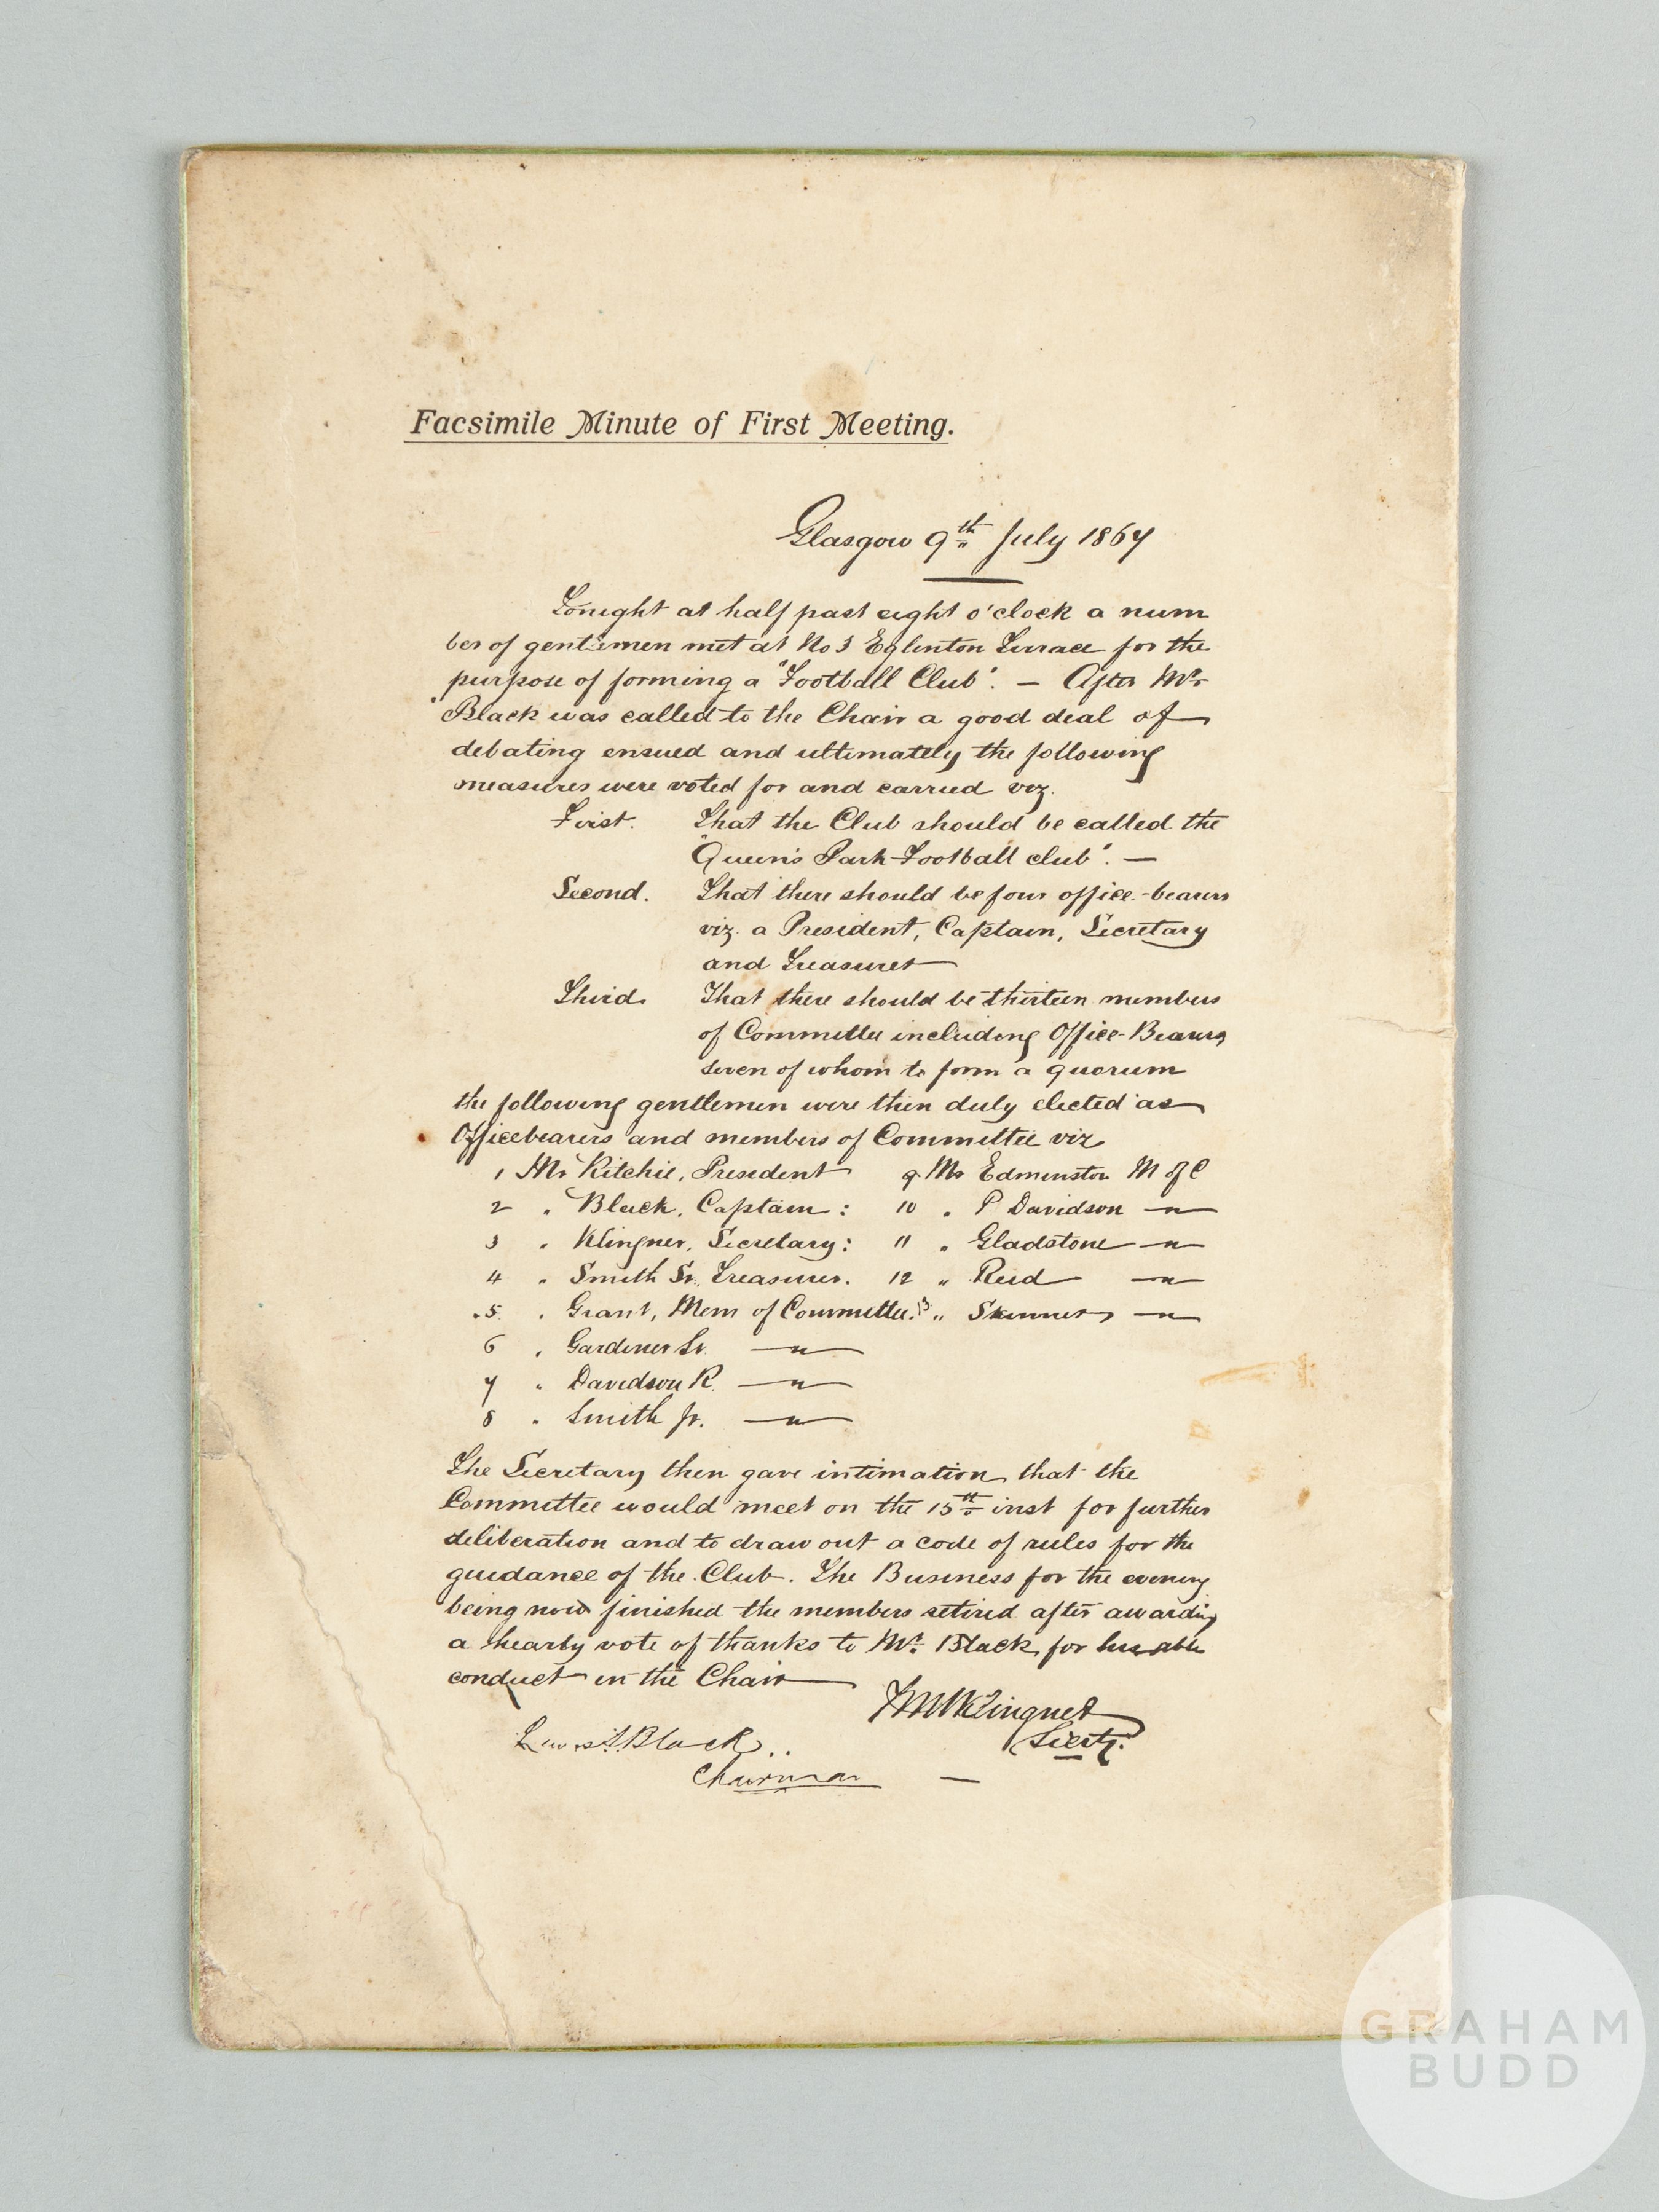 Facsimile Minute of First Meeting.
Glasgow 9th July 1867
Tonight at half past eight o'clock a num
ber of gentlemen met at No 3 Eglinton Terrace for the
purpose of forming a "Football Club". — After Mr
Black was called to the Chair a good deal of
debating ensued and ultimately the following
measures were voted for and carried viz.
First. That the Club should be called the
"Queen's Park Football club". —
Second. That there should be four office-bearers
viz. a President, Captain, Secretary
and Treasurer
Third. That there should be thirteen members
of Committee including Office-Bearers
seven of whom to form a quorum
the following gentlemen were then duly elected as
Officebearers and members of Committee viz
1 Mr Ritchie, President 9 Mr Edmenston M of C
2 " Black, Captain: 10 " P Davidson — " —
3 " Klingner, Secretary: 11 " Gladstone — " —
4 " Smith Sr. Treasurer. 12 " Reid — " —
5 " Grant, Mem of Committee. 13 " Skinner — " —
6 " Gardiner Sr. — " —
7 " Davidson R. — " —
8 " Smith Jr. — " —
The Secretary then gave intimation that the
Committee would meet on the 15th inst for further
deliberation and to draw out a code of rules for the
guidance of the Club. The Business for the evening
being now finished the members retired after awarding
a hearty vote of thanks to Mr. Black, for his able
conduct in the Chair
Klingner
Secty.
Lewis S. Black..
Chairman —
GRAHAM
BUDD